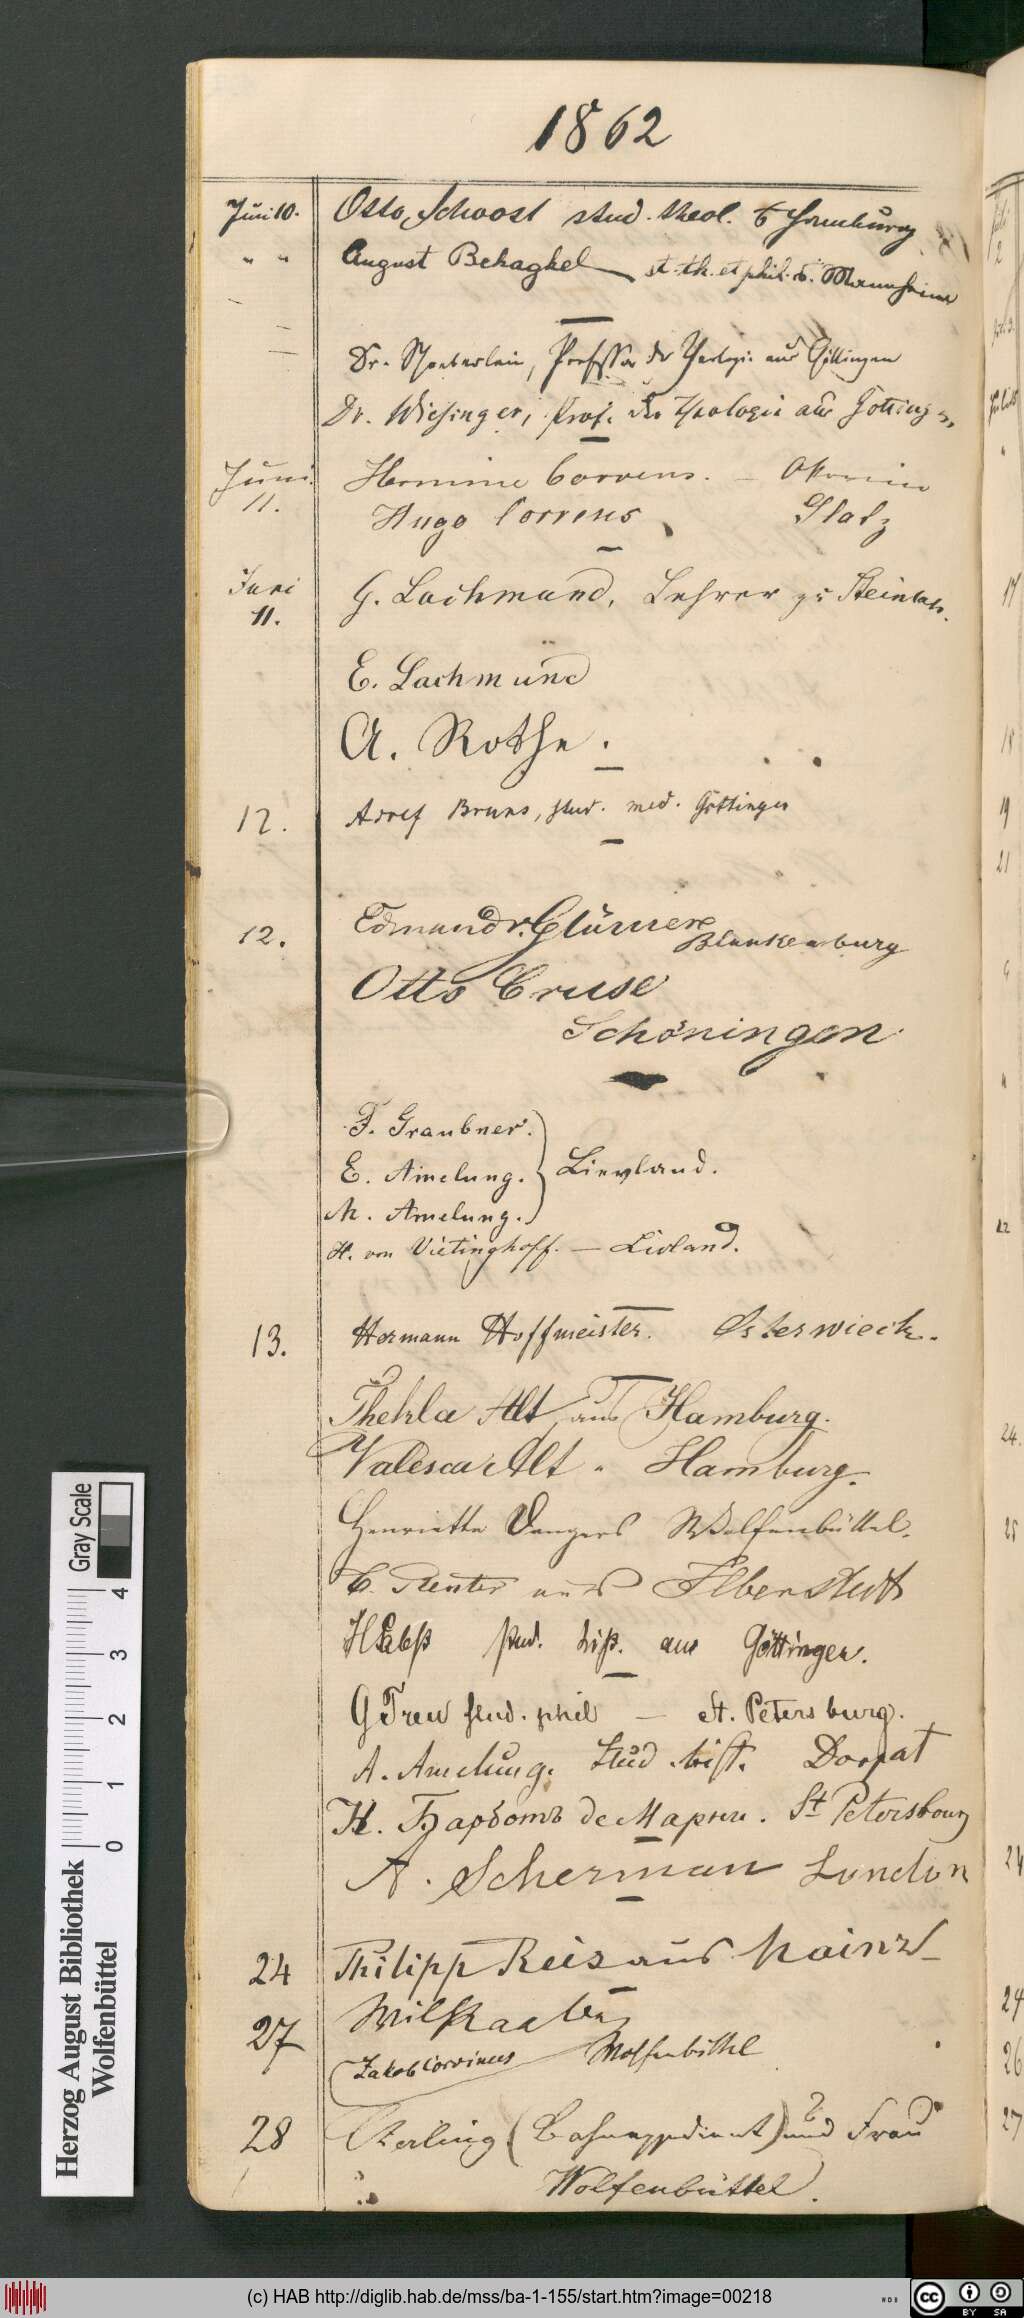 1862
Juni 10. Otto Schoost stud. theol. Hamburg
" " August Behaghel st. th. et phil. Mannheim
Dr. Schoeberlein, Professor der Theologie aus Göttingen
Dr. Wiesinger, Prof. der Theologie aus Göttingen
Juni 11. Hermine Correns. –
Hugo Correns Glatz
Juni 11. G. Lachmund, Lehrer zu
E. Lachmund
A. Rothe.
12. Adolf Bruns, stud. med. Göttingen
12. Edmund v. Glümer Blankenburg
Otto Cruse
Schöningen
F. Graubner.
E. Amelung. } Lievland.
M. Amelung.
H. von Vietinghoff. – Livland.
13. Hermann Hoffmeister. Osterwieck.
Thekla Alt aus Hamburg.
Valesca Alt " Hamburg.
Henriette Wolfenbüttel.
C. Reuter aus Ilberstedt
stud. hist. aus Göttingen.
G Treu stud. phil – St. Petersburg.
A. Amelung. Stud. hist. Dorpat
Н. Барботъ де Марни. St Petersbourg
A. Scherman London
24 Philipp Reis aus Mainz
27 Wilh Raabe
(Jakob Corvinus Wolfenbüttel
28 und Frau
Wolfenbüttel.
Gray Scale
0 1 2 3 4
Herzog August Bibliothek
Wolfenbüttel
(c) HAB http://diglib.hab.de/mss/ba-1-155/start.htm?image=00218
cc BY SA